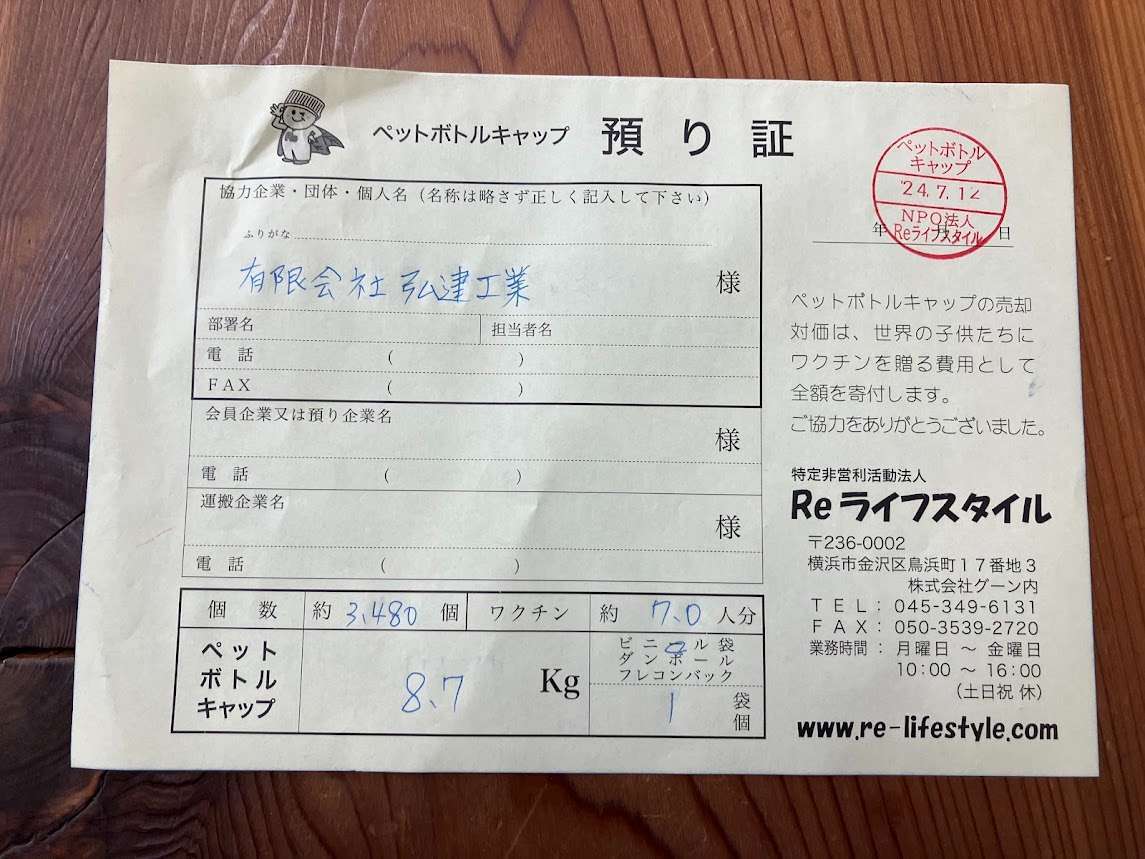 ペットボトルキャップ 預り証
ペットボトル
キャップ
'24.7.12
NPO法人
Reライフスタイル
年 月 日
協力企業・団体・個人名（名称は略さず正しく記入して下さい）
ふりがな
有限会社 弘建工業 様
部署名 担当者名
電話 ( )
FAX ( )
会員企業又は預り企業名
様
電話 ( )
運搬企業名
様
電話 ( )
個数 約 3,480 個 ワクチン 約 7.0 人分
ペット
ボトル
キャップ
8.7 Kg
ビニール袋
ダンボール
フレコンバック
1 袋
個
ペットボトルキャップの売却
対価は、世界の子供たちに
ワクチンを贈る費用として
全額を寄付します。
ご協力をありがとうございました。
特定非営利活動法人
Reライフスタイル
〒236-0002
横浜市金沢区鳥浜町17番地3
株式会社グーン内
TEL：045-349-6131
FAX：050-3539-2720
業務時間：月曜日 ～ 金曜日
10：00 ～ 16：00
（土日祝 休）
www.re-lifestyle.com